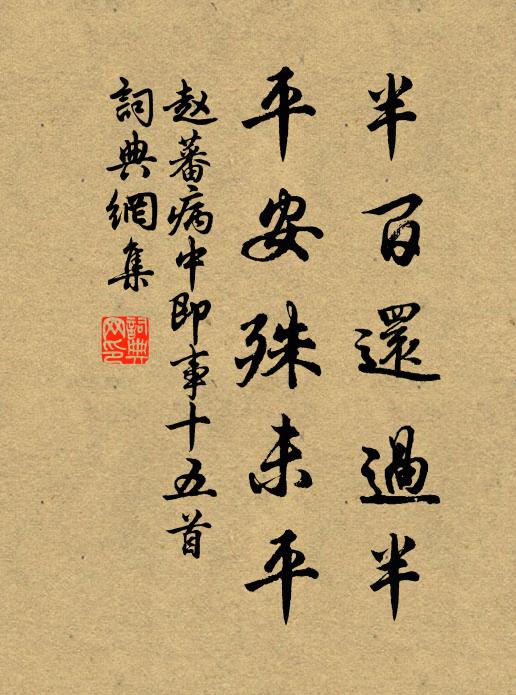 半百還過半
平安殊未平
赵蕃病中即事十五首
詞典網集
詞典
网印